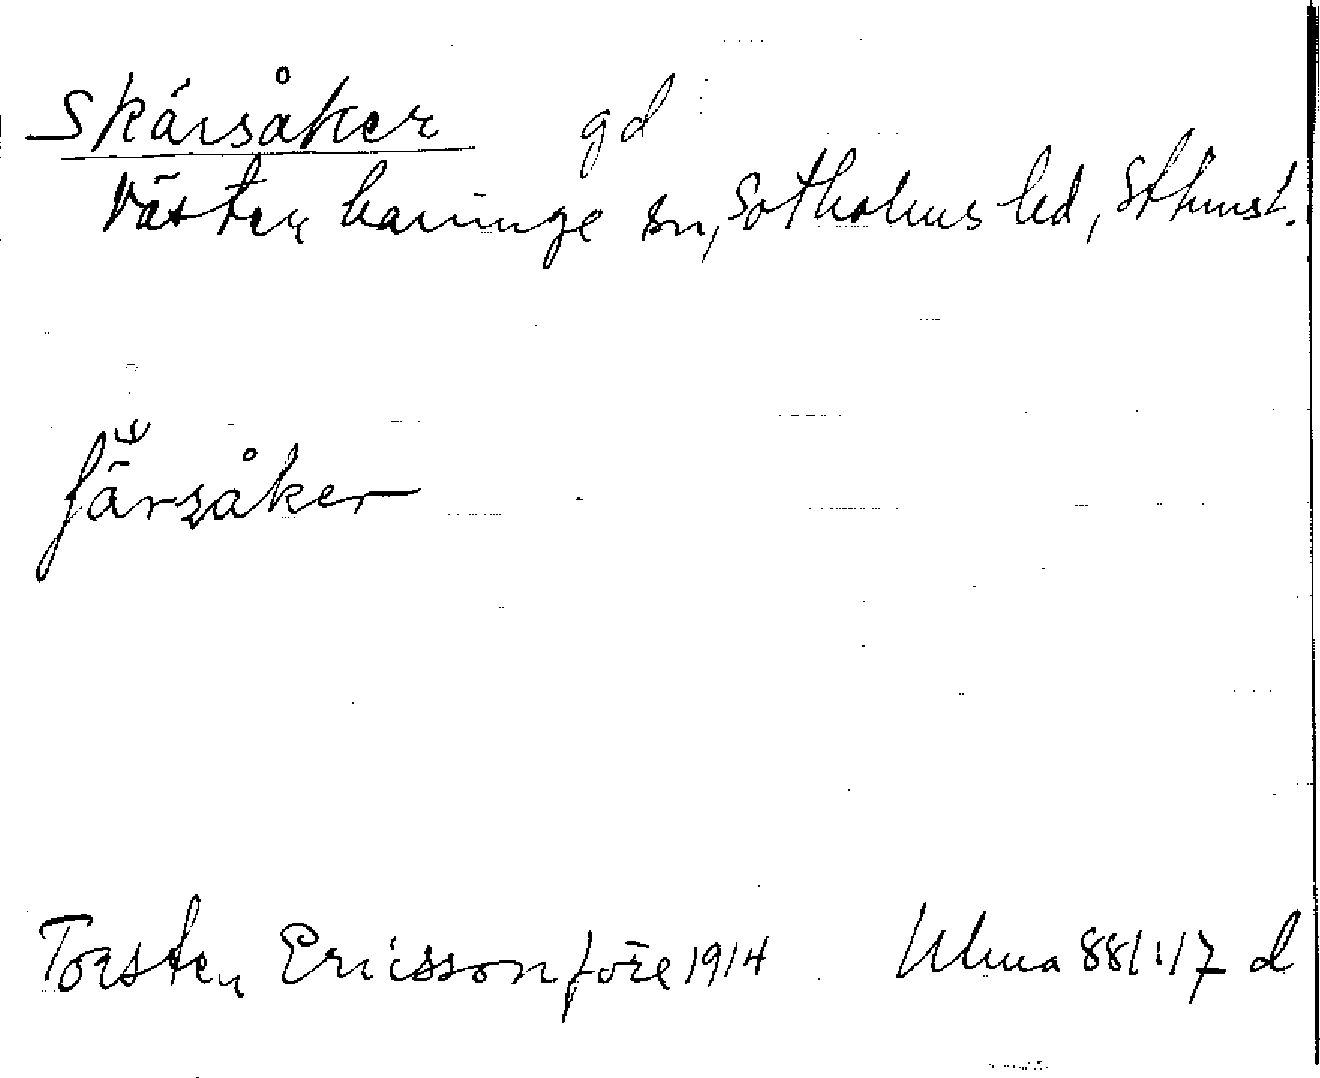 Skärsåker gd
Västerhaninge sn, Sotholms hd, Sthmsl.
ʃärsåker
Torsten Ericsson före 1914 Ulma 88/1/7 d